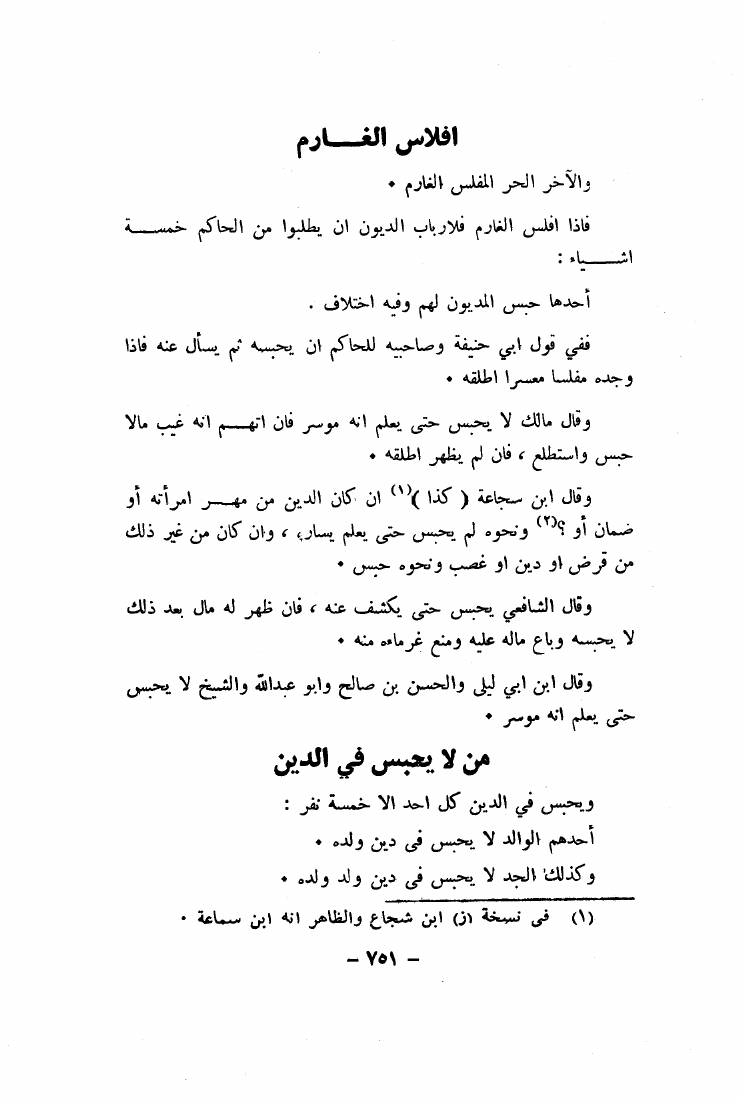 افلاس الغـــارم
والآخر الحر المفلس الغارم •
فاذا افلس الغارم فلارباب الديون ان يطلبوا من الحاكم خمســـة
اشـــياء :
أحدها حبس المديون لهم وفيه اختلاف .
ففي قول ابي حنيفة وصاحبيه للحاكم ان يحبسه ثم يسأل عنه فاذا
وجده مفلسا معسرا اطلقه •
وقال مالك لا يحبس حتى يعلم انه موسر فان اتهـــم انه غيب مالا
حبس واستطلع ، فان لم يظهر اطلقه •
وقال ابن سجاعة ( كذا )(١) ان كان الدين من مهـــر امرأته أو
ضمان أو ؟(٢) ونحوه لم يحبس حتى يعلم يساره ، وان كان من غير ذلك
من قرض او دين او غصب ونحوه حبس •
وقال الشافعي يحبس حتى يكشف عنه ، فان ظهر له مال بعد ذلك
لا يحبسه وباع ماله عليه ومنع غرماءه منه •
وقال ابن ابي ليلى والحسن بن صالح وابو عبدالله والشيخ لا يحبس
حتى يعلم انه موسر •
من لا يحبس في الدين
ويحبس في الدين كل احد الا خمسة نفر :
أحدهم الوالد لا يحبس فى دين ولده •
وكذلك الجد لا يحبس فى دين ولد ولده •
(١) فى نسخة (ز) ابن شجاع والظاهر انه ابن سماعة •
– ٧٥١ –